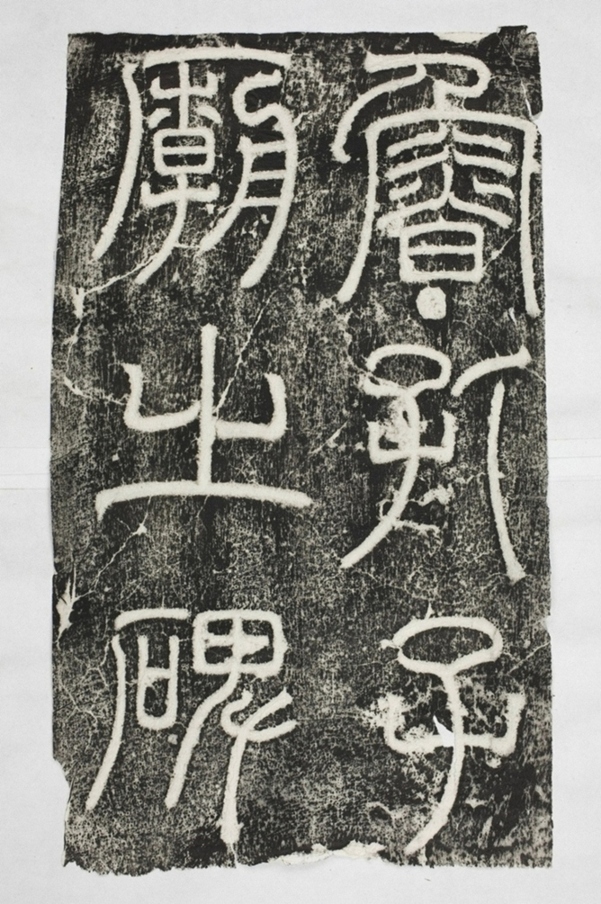 魯孔子
廟之碑